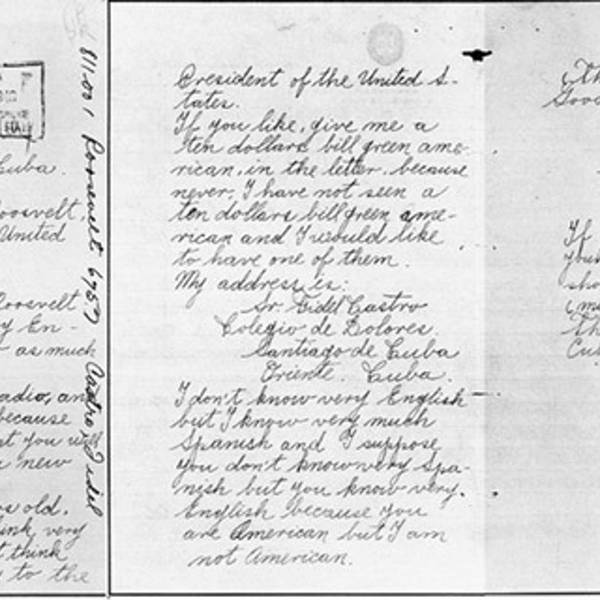 Cuba.
oosvelt,
United
oosvelt
y En-
as much
adio, and
because
t you will
new
s old.
ink very
t think
to the
811.001 Roosevelt 6957 Castro, Fidel
President of the United S-
tates.
If you like, give me a
ten dollars bill green ame-
rican, in the letter, because
never, I have not seen a
ten dollars bill green ame-
rican and I would like
to have one of them.
My address is:
Sr. Fidel Castro
Colegio de Dolores.
Santiago de Cuba
Oriente. Cuba.
I don't know very English
but I know very much
Spanish and I suppose
you don't know very Spa-
nish but you know very
English because you
are American but I am
not American.
(Th
Good
If
your
sho
(m
Th
Cu